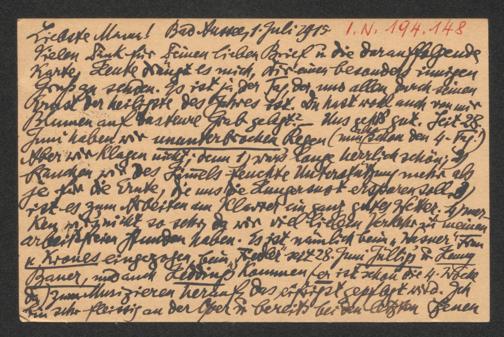 Liebste Mama! Bad Aussee, 1. Juli 1915 I.N. 194.148
Vielen Dank für Deinen lieben Brief u die darauffolgende
Karte. Heute drängt es mich, Dir einen besonders innigen
Gruß zu senden. Es ist ja der Tag der uns allen durch seinen
Ernst der heiligste des Jahres ist. Du hast wohl auch von mir
Blumen auf das teure Grab gelegt? Uns geht's gut. Seit 28.
Juni haben wir ununterbrochen Regen (nun schon den 4. Tag!)
Aber wir klagen nicht, denn 1) war's lange herrlich schön, 2)
brauchen wir des Himmels feuchte Unterstützung mehr als
je für die Ernte, die uns die Hungersnot ersparen soll, 3)
ist es zum Arbeiten am Klavier ein ganz gutes Wetter, 4)
wir nicht so sehr, da wir viel lieben Verkehr zu meinen
arbeitsfreien Stunden haben. Es ist nämlich beim Frau
v. Krones eingezogen, beim seit 28. Juni u
Bauer, und kommen (er ist schon die 4. Woche
da) zum Musizieren herauf, das eifrigst gepflegt wird. Ich
bin sehr fleissig an der Oper u bereits bei den letzten Szenen